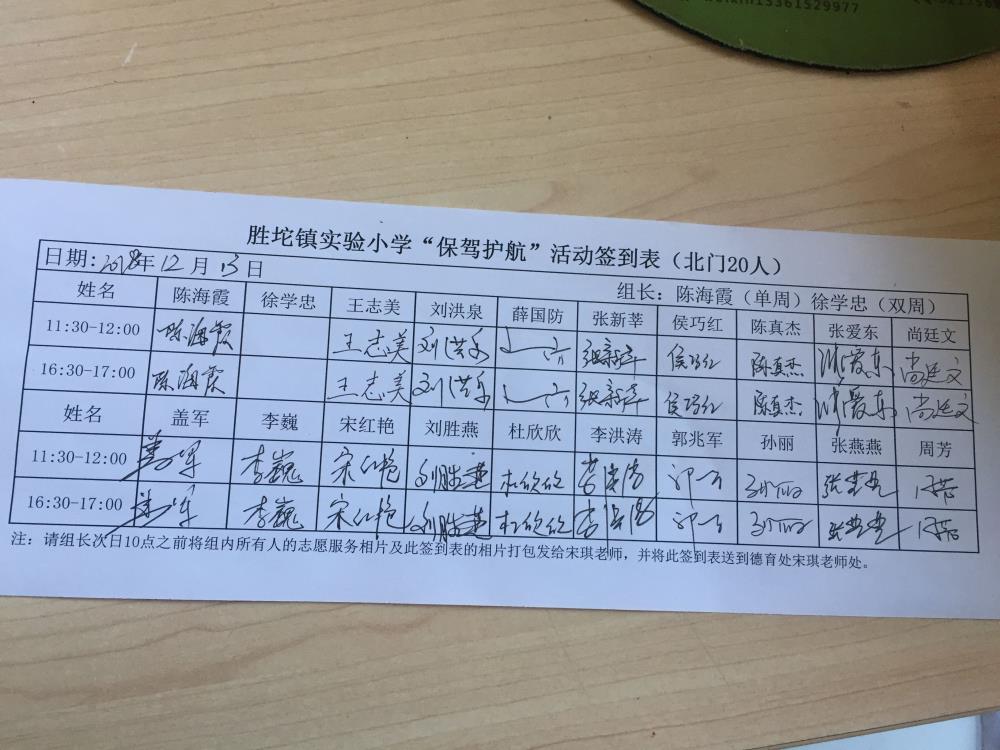 15361529977
胜坨镇实验小学“保驾护航”活动签到表（北门20人）
日期:2018年12月13日
组长：陈海霞（单周）徐学忠（双周）
姓名 陈海霞 徐学忠 王志美 刘洪泉 薛国防 张新莘 侯巧红 陈真杰 张爱东 尚廷文
11:30-12:00 陈海霞 王志美 刘洪泉 张新莘 侯巧红 陈真杰 张爱东 尚廷文
16:30-17:00 陈海霞 王志美 刘洪泉 张新莘 侯巧红 陈真杰 张爱东 尚廷文
姓名 盖军 李巍 宋红艳 刘胜燕 杜欣欣 李洪涛 郭兆军 孙丽 张燕燕 周芳
11:30-12:00 盖军 李巍 宋红艳 刘胜燕 杜欣欣 李洪涛 孙丽 张燕燕 周芳
16:30-17:00 盖军 李巍 宋红艳 刘胜燕 杜欣欣 李洪涛 孙丽 张燕燕 周芳
注：请组长次日10点之前将组内所有人的志愿服务相片及此签到表的相片打包发给宋琪老师，并将此签到表送到德育处宋琪老师处。